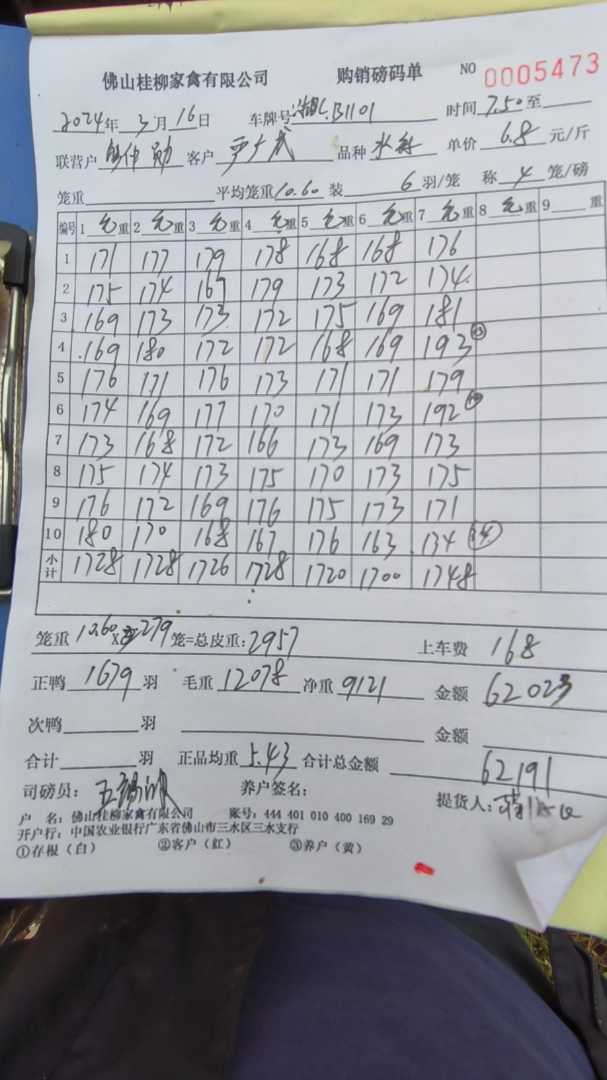 佛山桂柳家禽有限公司 购销磅码单 NO 0005473
2024年 3月 16日 车牌号 B1101 时间 7.50 至
联营户 客户 品种 单价 6.8 元/斤
笼重 平均笼重 10.60 装 6 羽/笼 称 4 笼/磅
编号 1 毛重 2 毛重 3 毛重 4 毛重 5 毛重 6 毛重 7 毛重 8 毛重 9 重
1 171 177 179 178 168 168 176
2 175 174 167 179 173 172 174
3 169 173 173 172 175 169 181
4 169 180 172 172 168 169 193
5 176 171 176 173 171 171 179
6 174 169 177 170 171 173 192
7 173 168 172 166 173 169 173
8 175 174 173 175 170 173 175
9 176 172 169 176 175 173 171
10 180 170 168 167 176 163 134
小计 1728 1728 1726 1728 1720 1700 1748
笼重 10.60 X 279 笼=总皮重: 2957 上车费 168
正鸭 1679 羽 毛重 12078 净重 9121 金额 62023
次鸭 羽 金额
合计 羽 正品均重 5.43 合计总金额 62191
司磅员: 养户签名: 提货人:
户 名: 佛山桂柳家禽有限公司 账号: 444 401 010 400 169 29
开户行: 中国农业银行广东省佛山市三水区三水支行
①存根（白） ②客户（红） ③养户（黄）